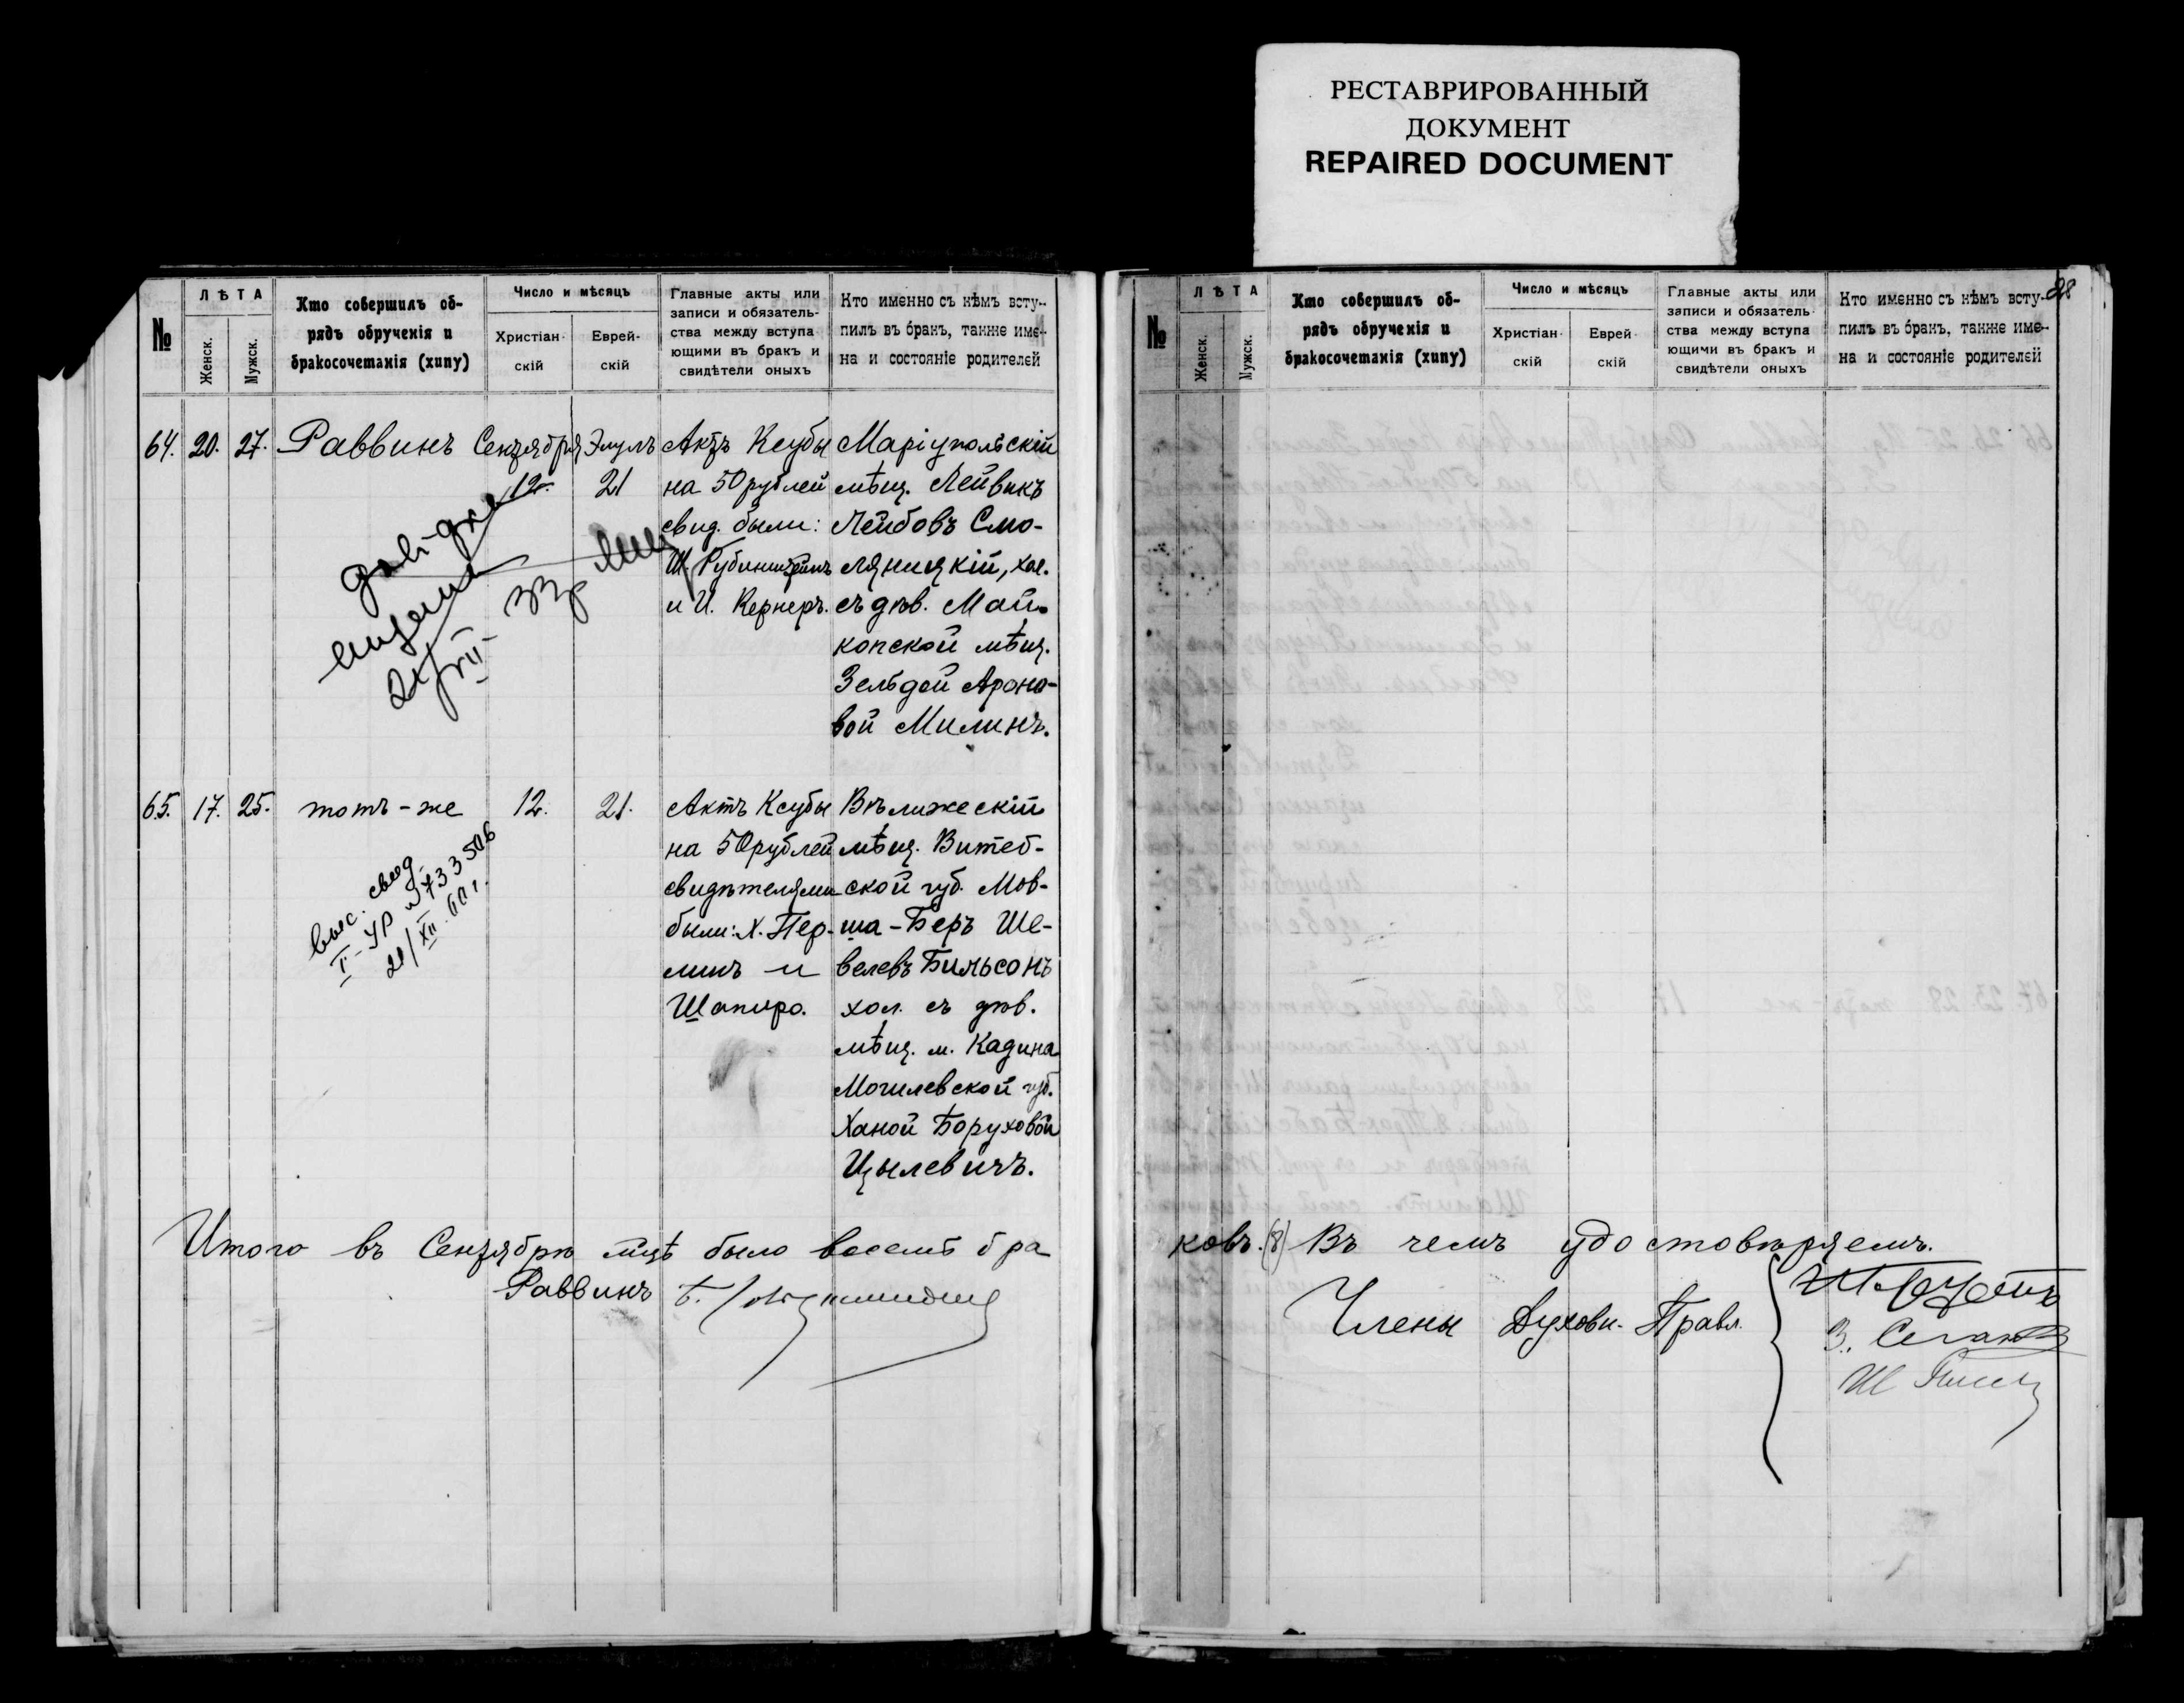 РЕСТАВРИРОВАННЫЙ
ДОКУМЕНТ
REPAIRED DOCUMENT
№
ЛѢТА
Женск.
Мужск.
Кто совершилъ об-
рядъ обрученія и
бракосочетанія (хипу)
Число и мѣсяцъ
Христіан-
скій
Еврей-
скій
Главные акты или
записи и обязатель-
ства между вступа
ющими въ бракъ и
свидѣтели оныхъ
Кто именно съ нѣмъ всту-
пилъ въ бракъ, также име-
на и состояніе родителей
64. 20. 27. Раввинъ Сентября 12. Элулъ 21
Актъ Ксубы
на 50 рублей
свид. были:
Ш. Рубинштейнъ
и И. Кернеръ.
Маріупольскій
мѣщ. Лейвикъ
Лейбовъ Смо-
ляницкій, хол.
съ дѣв. Май-
копской мѣщ.
Зельдой Ароно-
вой Милинъ.
65. 17. 25. тотъ-же 12. 21.
выс. свид.
I-УР № 733506
21/XII
Актъ Ксубы
на 50 рублей
свидѣтелями
были: Х. Пер-
линъ и
Шапиро.
Вѣлижескій
мѣщ. Витеб-
ской губ. Мов-
ша-Беръ Ше-
велевъ Бильсонъ
хол. съ дѣв.
мѣщ. м. Кадина
Могилевской губ.
Ханой Боруховой
Цылевичъ.
Итого въ Сентябрѣ мцѣ было восемь бра
Раввинъ
88
№
ЛѢТА
Женск.
Мужск.
Кто совершилъ об-
рядъ обрученія и
бракосочетанія (хипу)
Число и мѣсяцъ
Христіан-
скій
Еврей-
скій
Главные акты или
записи и обязатель-
ства между вступа
ющими въ бракъ и
свидѣтели оныхъ
Кто именно съ нѣмъ всту-
пилъ въ бракъ, также име-
на и состояніе родителей
ковъ. (8) Въ чемъ удостовѣряемъ.
Члены Духовн. Правл.